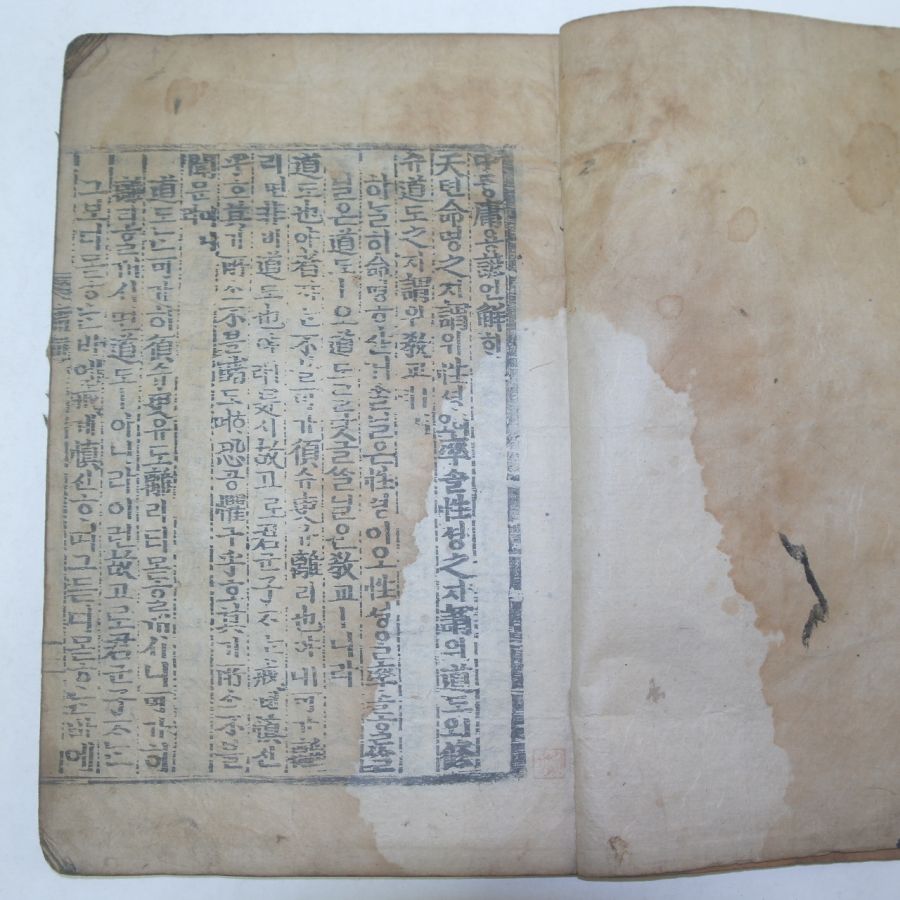 中듕庸용諺언解ᄒᆡ
天텬命명之지謂위性셩이오率솔性셩之지謂위道도ㅣ오修
슈道도之지謂위敎교ㅣ니라
하ᄂᆞᆯ히命명ᄒᆞ샨거ᄉᆞᆯ닐온性셩이오性셩을率솔홈을
닐온道도ㅣ오道도ᄅᆞᆯ닷ᄀᆞᆯᄉᆞᆯ닐온敎교ㅣ니라
道도也야者쟈ᄂᆞᆫ不블可가須슈臾유離리也야ㅣ니可가離
리면非비道도也야ㅣ라是시故고로君군子ᄌᆞᄂᆞᆫ戒계愼신
乎호其기所소不블睹도ᄒᆞ며恐공懼구乎호其기所소不블
聞문이니라
道도ᄂᆞᆫ可가히須슈臾유도離리티몯ᄒᆞᆯ거시니可가히
離리ᄒᆞᆯ거시면道도ㅣ아니라이런故고로君군子ᄌᆞᄂᆞᆫ
그보디몯ᄒᆞᄂᆞᆫ바애戒계愼신ᄒᆞ며그듣디몯ᄒᆞᄂᆞᆫ바애